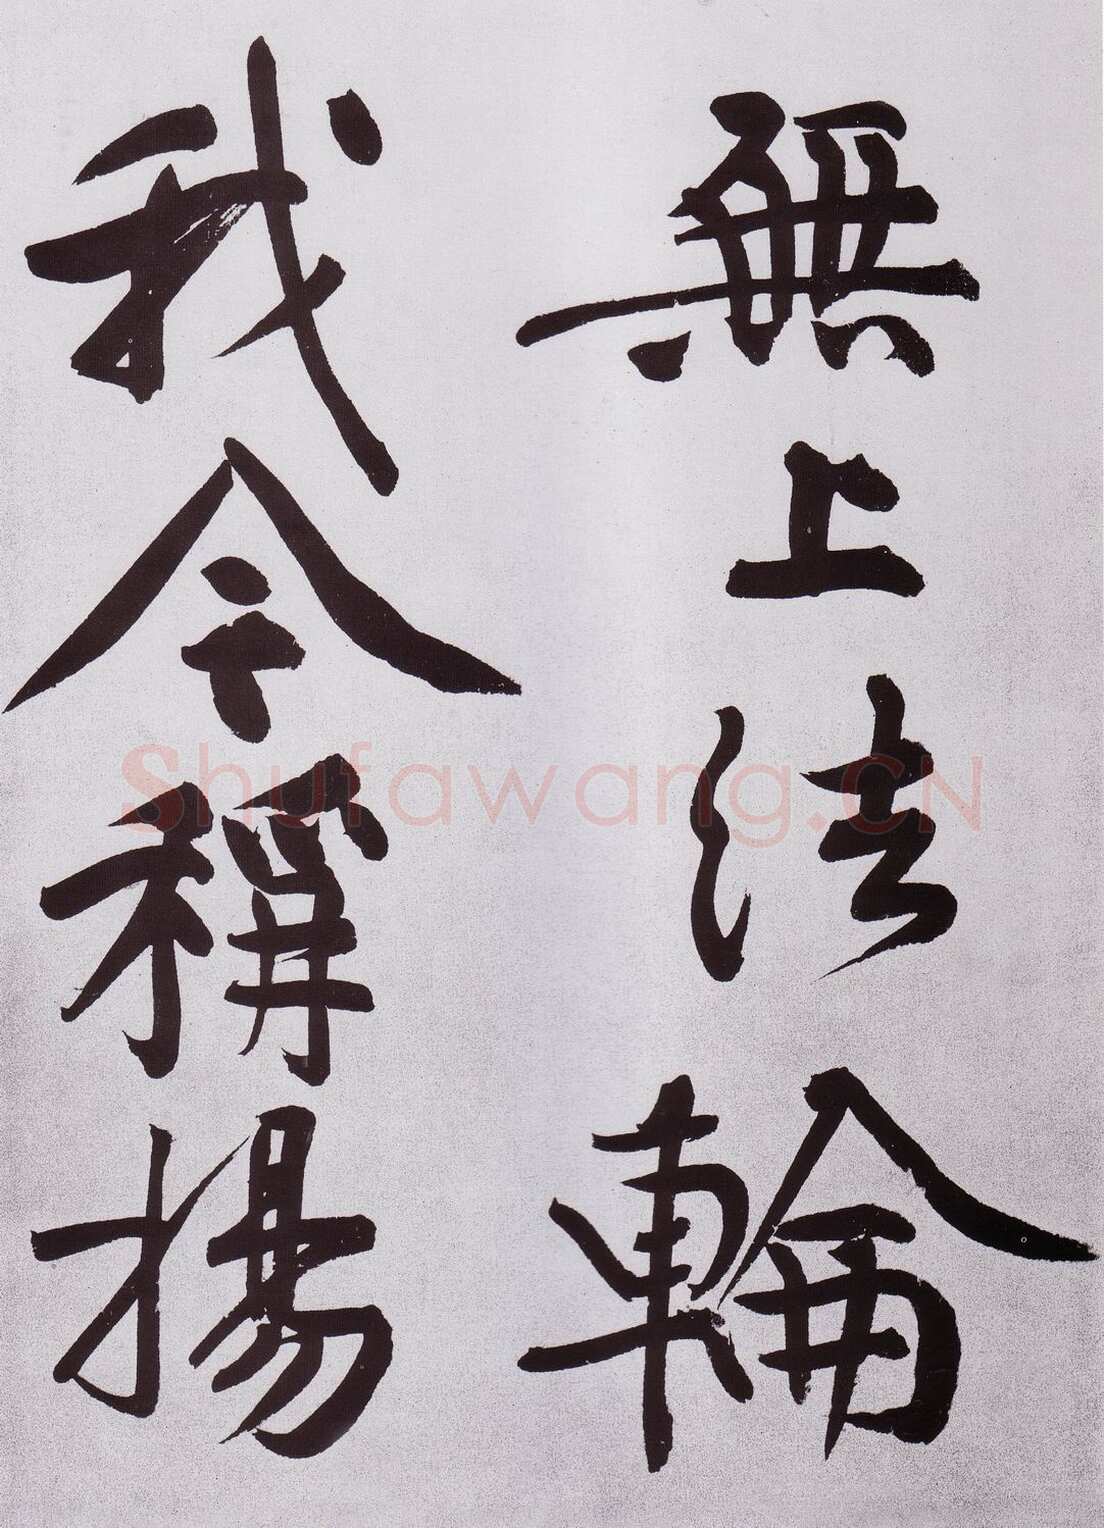 無上法輪
我今稱揚
Shufawang.CN